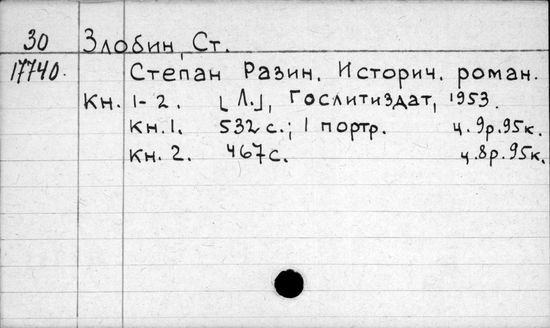 30 Злобин, Ст.
17740. Степан Разин. Историч. роман.
Кн. 1-2. [Л.], Гослитиздат, 1953.
Кн. 1. 532 с.; 1 портр. ц. 9р. 95к.
Кн. 2. 467 с. ц. 8р. 95к.